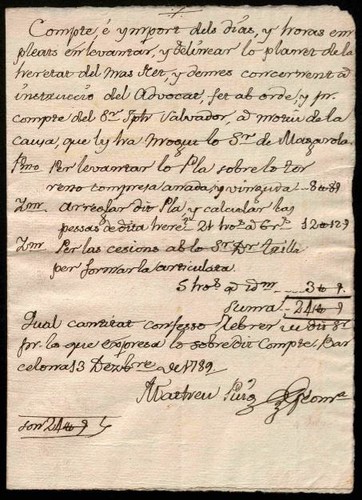 Compte, é ymport dels dias, y horas em
pleats en levantar, y delinear lo planet de la
heretat del Mas Ket, y demes concernent á
instruccio del Advocat, fet ab orde, y pr
compte del Sr Jph Salvador, á motiu de la
causa, que ly ha mogut lo Sr de Magarola.
Pmo Per levantar lo Pla sobre lo ter
reno compresa anada, y vinguda
Imr arreglar dit Pla y calcular las
pessas de dita
Imr Per las cesions ab lo Sr Dr
per formar la articulata.
5 hos á idm 3
Suma 24
Qual cantitat confesso rebrer de dit Sr
pr lo que expresa lo sobre dit Compte, Bar
celona 13 Dezbre de 1789.
Matheu Puig Geomra
Son 24